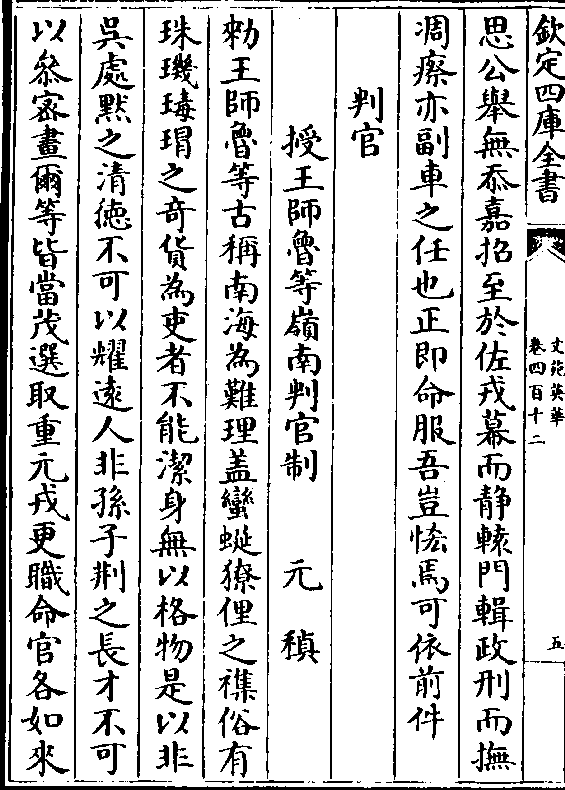 欽定四庫全書
文苑英華
卷四百十二
五
思公舉無忝嘉招至於佐戎幕而静轅門輯政刑而撫
凋瘵亦副車之任也正即命服吾豈恡焉可依前件
判官
授王師魯等嶺南判官制　元稹
勑王師魯等古稱南海為難理盖蠻蜒獠俚之襍俗有
珠璣瑇瑁之奇貨為吏者不能潔身無以格物是以非
吳處黙之清徳不可以耀逺人非孫子荆之長才不可
以叅密畫爾等皆當茂選取重元戎更職命官各如來